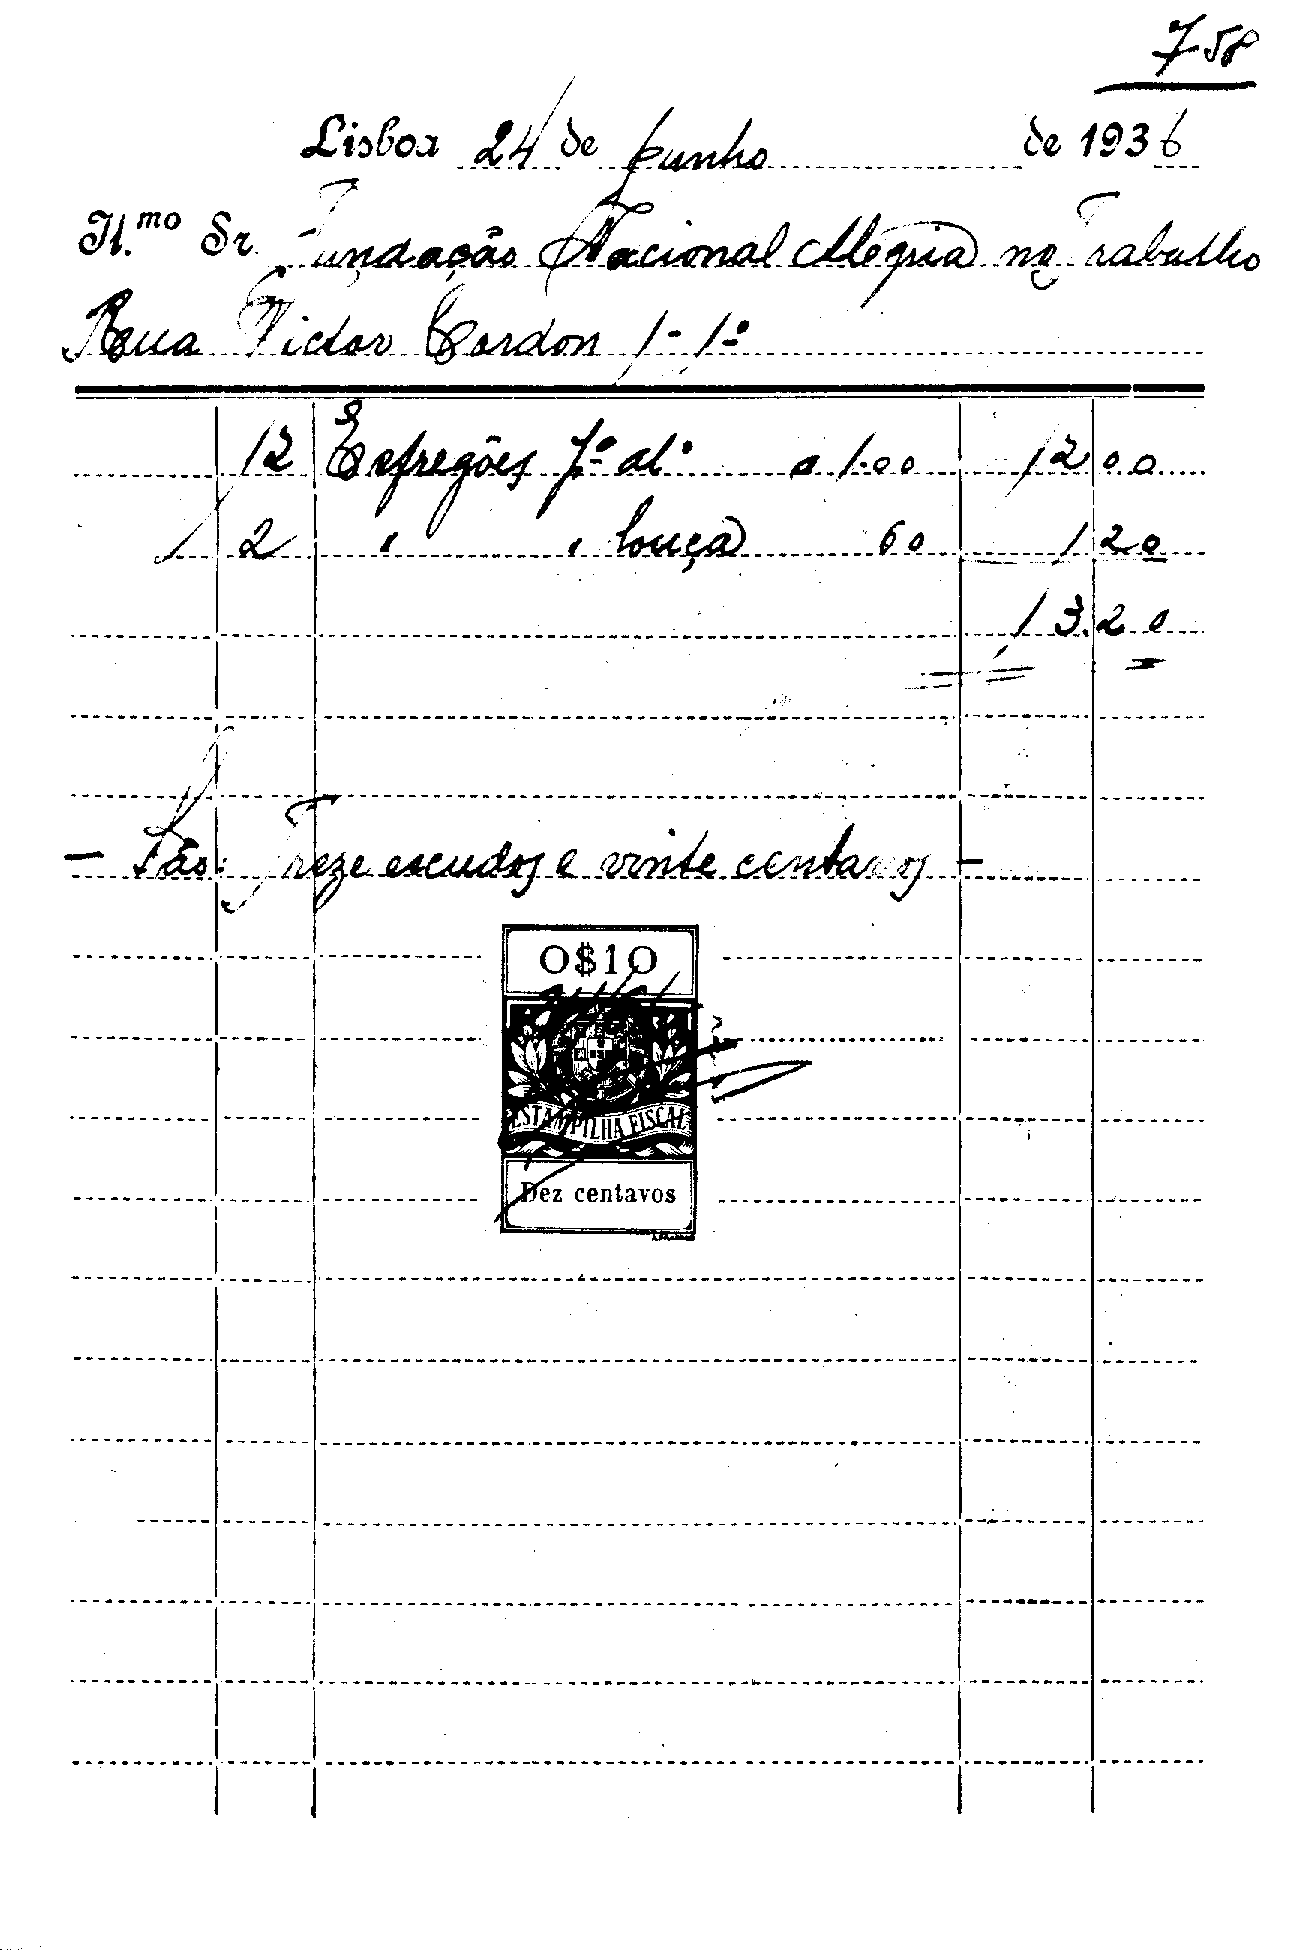 758
Lisboa 24 de Junho de 1936
Il.mo Sr. Fundação Nacional Alegria no Trabalho
Rua Victor Cordon 1-1º
12 Esfregões pª al. a 1.00 12 00
2 " " louça 60 1 20
13.20
- São: Treze escudos e vinte centavos -
0$10
ESTAMPILHA FISCAL
Dez centavos